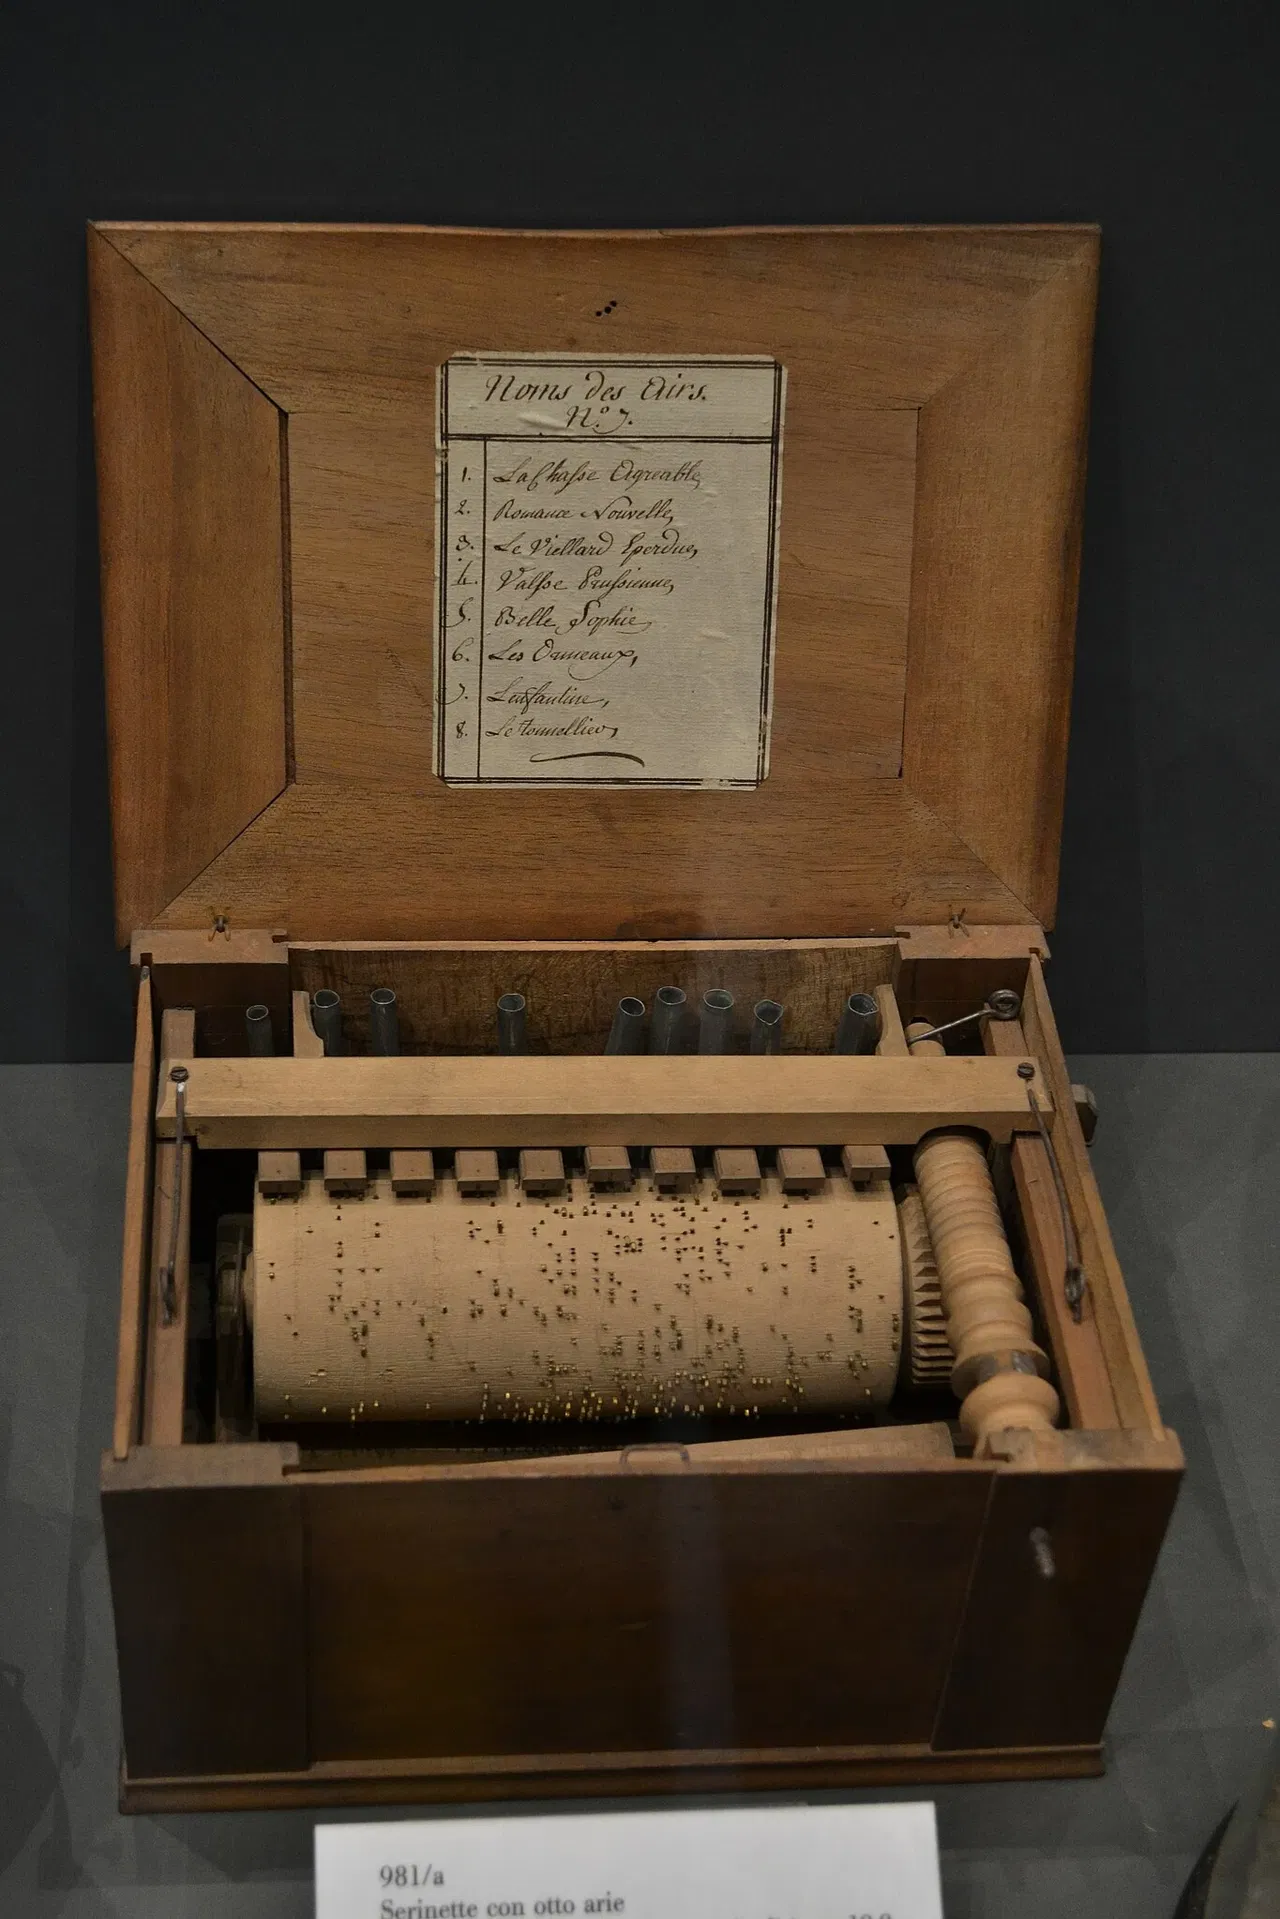 Noms des Airs.
N.º 7.
1. La Chasse Agreable,
2. Romance Nouvelle,
3. Le Viellard Eperdue,
4. Valsse Prussienne,
5. Belle Sophie,
6. Les Ormeaux,
7. Lenfantine,
8. Le tonnellier,
981/a
Serinette con otto arie